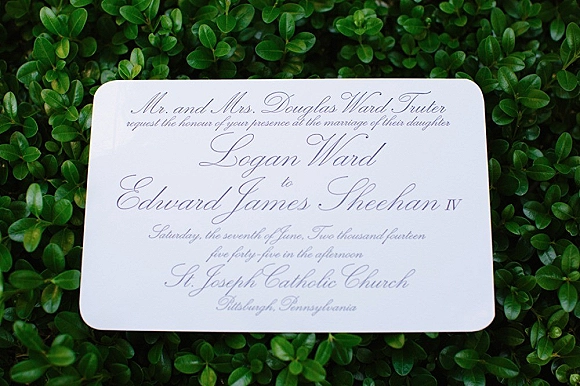 Mr. and Mrs. Douglas Ward Truter
request the honour of your presence at the marriage of their daughter
Logan Ward
to
Edward James Sheehan IV
Saturday, the seventh of June, Two thousand fourteen
five forty-five in the afternoon
St. Joseph Catholic Church
Pittsburgh, Pennsylvania